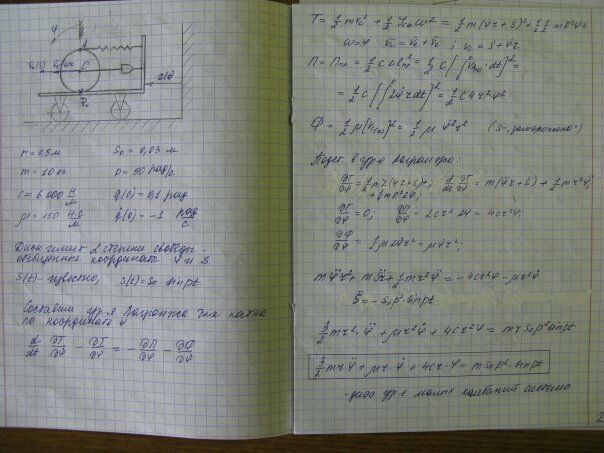 φ
A
C
S(t)
r = 0,5 м    S₀ = 0,03 м
m = 10 кг    p = 50 рад/с
c = 6 000 Н/м    φ(0) = 0,1 рад
μ = 150 Н·с/м    φ̇(0) = -1 рад/с
Диск имеет 2 степени свободы -
обобщенные координаты φ и S
S(t) - известно,    S(t) = S₀ · sin pt
Составим ур-я Лагранжа для катка
по координате φ
d/dt ∂T/∂φ̇ - ∂T/∂φ = - ∂П/∂φ - ∂Ф/∂φ̇
T = 1/2 m V_c² + 1/2 J_c ω² = 1/2 m (φ̇r + Ṡ)² + 1/2 1/2 m R² φ̇²
ω = φ̇    V̄_c = V̄_e + V̄_r ; V_c = Ṡ + φ̇r
П = П_пр = 1/2 c Δl² = 1/2 c (∫ V dt)² =
= 1/2 c (∫ 2φ̇r dt)² = 1/2 c 4r²φ²
Ф = 1/2 μ [V]² = 1/2 μ φ̇²r²    (S - "заморожена")
Подст. в ур-е Лагранжа:
∂T/∂φ̇ = 1/2 m 2(φ̇r + Ṡ)r + 1/4 m R² 2φ̇;    d/dt ∂T/∂φ̇ = m(φ̈r + S̈)r + 1/2 m r² φ̈;
∂T/∂φ = 0;    ∂П/∂φ = 2cr² · 2φ = 4cr²φ;
∂Ф/∂φ̇ = 1/2 μ 2φ̇r² = μφ̇r²;
mφ̈r² + mS̈r + 1/2 mr²φ̈ = -4cr²φ - μr²φ̇
S̈ = -S₀p² · sin pt
3/2 mr² · φ̈ + μr²φ̇ + 4cr²φ = mrS₀p² sin pt
3/2 mr · φ̈ + μr · φ̇ + 4cr · φ = mS₀p² · sin pt
- дифф ур-е малых колебаний системы
2